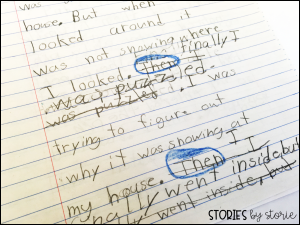 was
house. But when
looked around it
was not snowing here
Then finally I
I looked.
was puzzled.
was puzzled. I was
trying to figure out
why it was snowing at
my house. Then I
finally went inside but
went inside, but
STORIES by storie